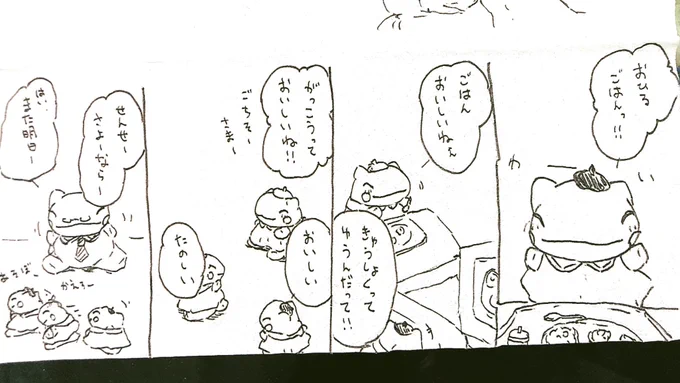 おひる
ごはんっ!!
わ
い
ごはん
おいしいねぇ
きゅうしょくって
ゆうんだって!!
がっこうって
おいしいね!!
ごちそー
さまー
おいしい
たのしい
せんせー
さよーならー
はい
また明日ー
あそぼー
かえろー